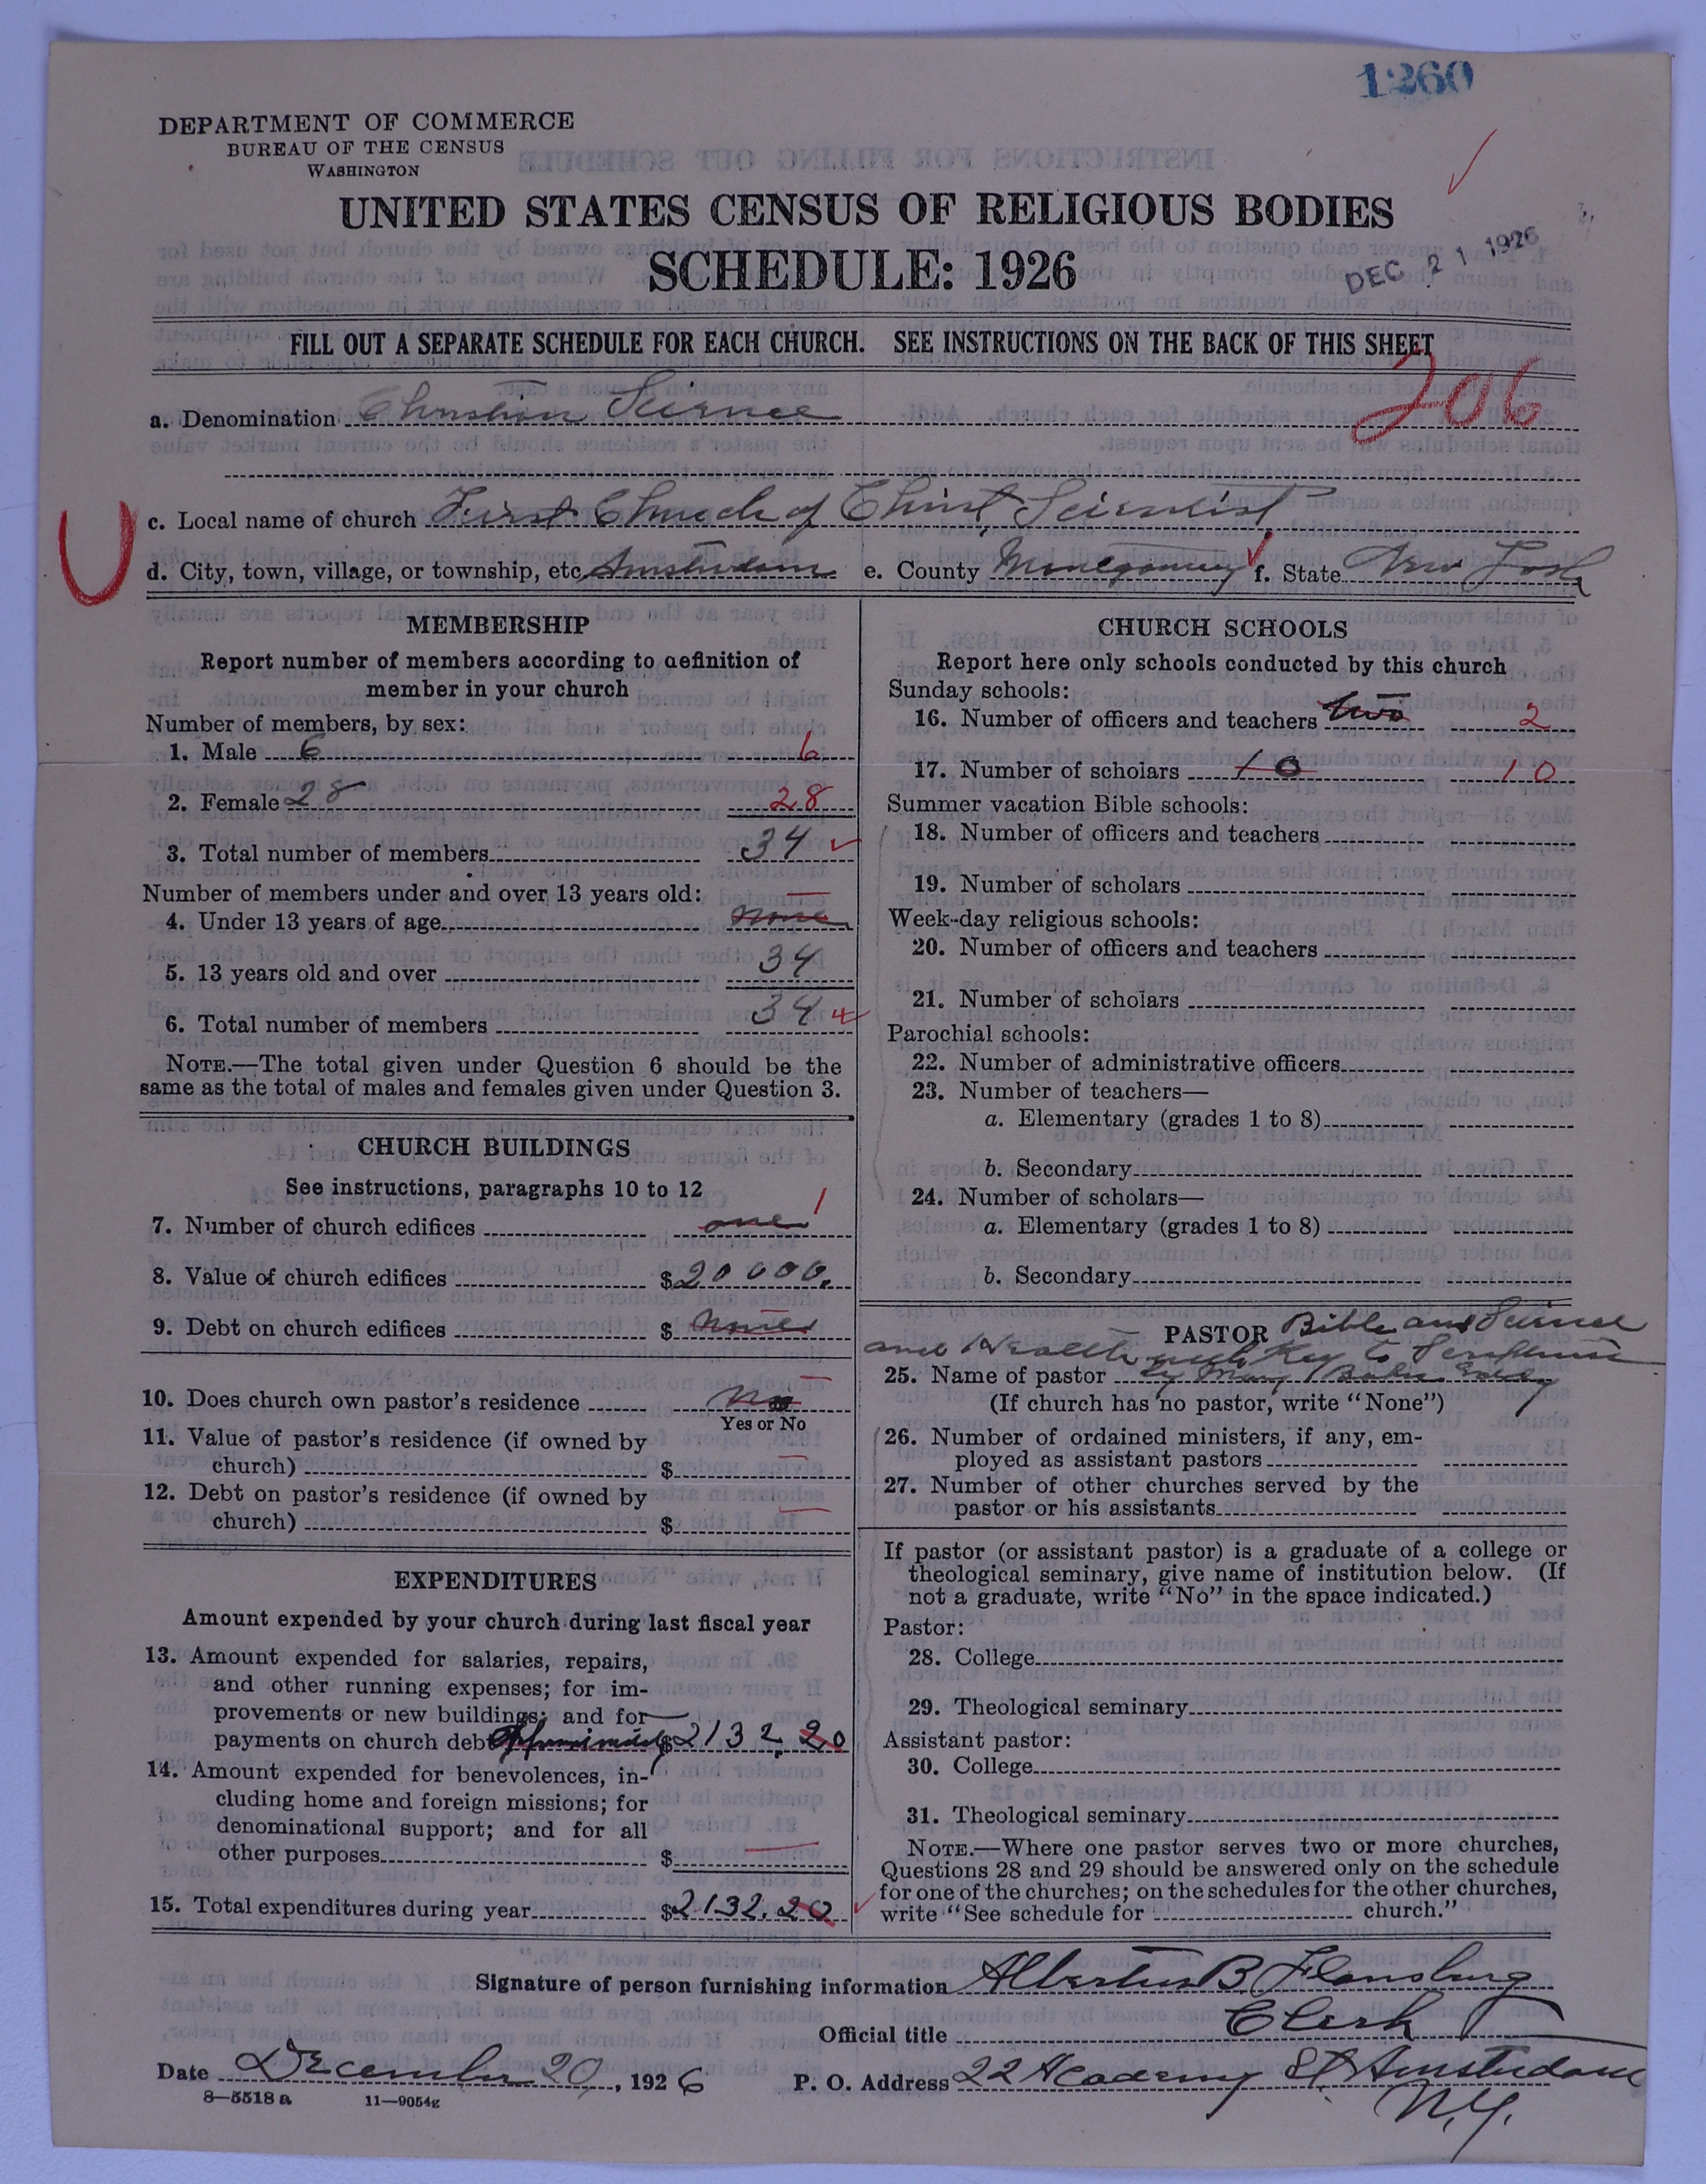 1260
DEPARTMENT OF COMMERCE
BUREAU OF THE CENSUS
WASHINGTON
UNITED STATES CENSUS OF RELIGIOUS BODIES
SCHEDULE: 1926
DEC 21 1926
FILL OUT A SEPARATE SCHEDULE FOR EACH CHURCH. SEE INSTRUCTIONS ON THE BACK OF THIS SHEET
206
a. Denomination Christian Science
c. Local name of church First Church of Christ, Scientist,
d. City, town, village, or township, etc. Amsterdam e. County Montgomery f. State New York
MEMBERSHIP
Report number of members according to definition of
member in your church
Number of members, by sex:
1. Male 6 6
2. Female 28 28
3. Total number of members 34
Number of members under and over 13 years old:
4. Under 13 years of age None
5. 13 years old and over 34
6. Total number of members 34
NOTE.—The total given under Question 6 should be the
same as the total of males and females given under Question 3.
CHURCH BUILDINGS
See instructions, paragraphs 10 to 12
7. Number of church edifices one 1
8. Value of church edifices $20000.
9. Debt on church edifices $ None
10. Does church own pastor's residence No
Yes or No
11. Value of pastor's residence (if owned by
church) $
12. Debt on pastor's residence (if owned by
church) $
EXPENDITURES
Amount expended by your church during last fiscal year
13. Amount expended for salaries, repairs,
and other running expenses; for im-
provements or new buildings; and for
payments on church debt Approximately $2132.20
14. Amount expended for benevolences, in-
cluding home and foreign missions; for
denominational support; and for all
other purposes $
15. Total expenditures during year $2132.20
CHURCH SCHOOLS
Report here only schools conducted by this church
Sunday schools:
16. Number of officers and teachers two 2
17. Number of scholars 10 10
Summer vacation Bible schools:
18. Number of officers and teachers
19. Number of scholars
Week-day religious schools:
20. Number of officers and teachers
21. Number of scholars
Parochial schools:
22. Number of administrative officers
23. Number of teachers—
a. Elementary (grades 1 to 8)
b. Secondary
24. Number of scholars—
a. Elementary (grades 1 to 8)
b. Secondary
PASTOR Bible and Science
and Health with Key to Scriptures
25. Name of pastor by Mary Baker Eddy
(If church has no pastor, write "None")
26. Number of ordained ministers, if any, em-
ployed as assistant pastors
27. Number of other churches served by the
pastor or his assistants
If pastor (or assistant pastor) is a graduate of a college or
theological seminary, give name of institution below. (If
not a graduate, write "No" in the space indicated.)
Pastor:
28. College
29. Theological seminary
Assistant pastor:
30. College
31. Theological seminary
NOTE.—Where one pastor serves two or more churches,
Questions 28 and 29 should be answered only on the schedule
for one of the churches; on the schedules for the other churches,
write "See schedule for church."
Signature of person furnishing information Albertus B. Flansburg
Official title Clerk
Date December 20, 1926 P. O. Address 22 Academy St Amsterdam
N.Y.
8—5518 a 11—9054g